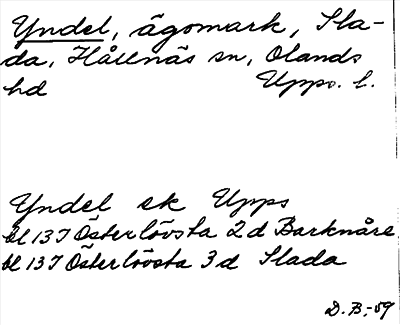 Yndel, ägomark, Sla-
da, Hållnäs sn, Olands
hd Upps. l.
Yndel ek Upps
bl 137 Österlövsta 2d Barknåre
bl 137 Österlövsta 3d Slada
D.B.-59